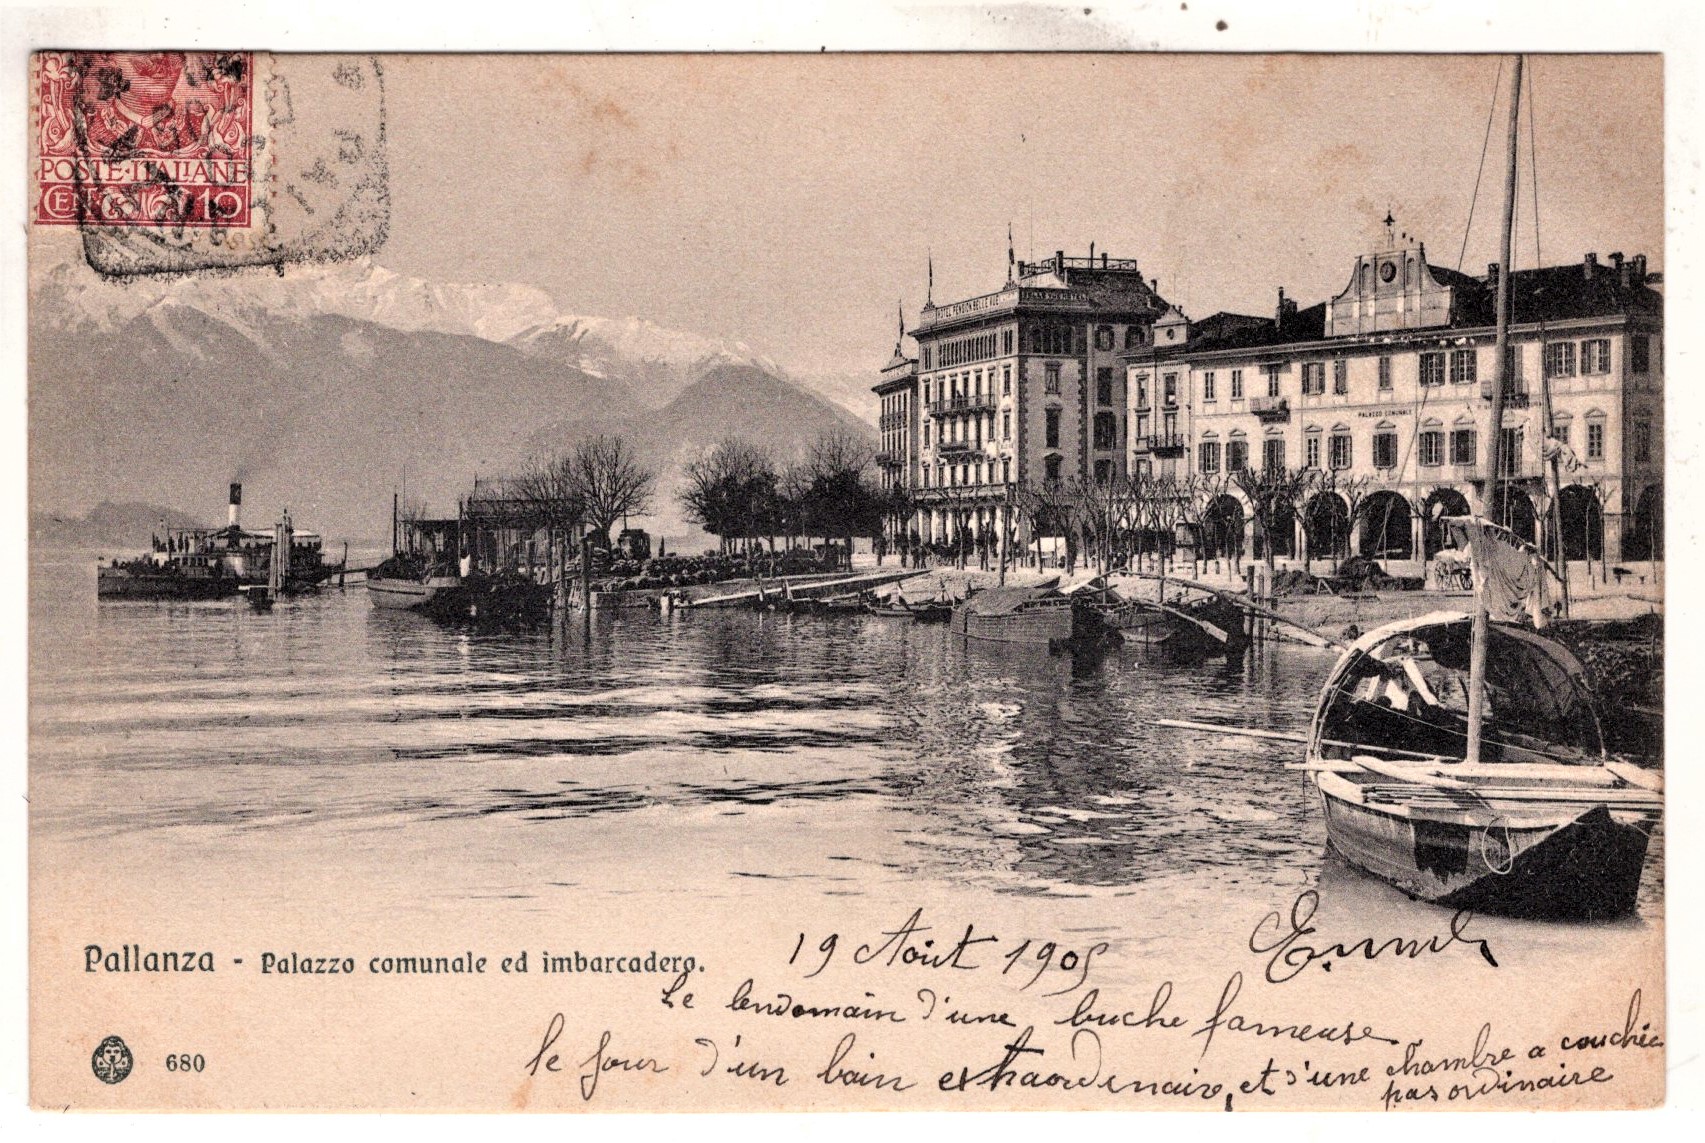 POSTE·ITALIANE
CEN. 10
HOTEL PENSION BELLE VUE
BELLE VUE HOTEL
PALAZZO COMUNALE
Pallanza - Palazzo comunale ed imbarcadero.
19 Août 1905
Le lendomain d'une buche fameuse
le jour d'un bain extraordinaire, et d'une chambre a couchée
pas ordinaire
680